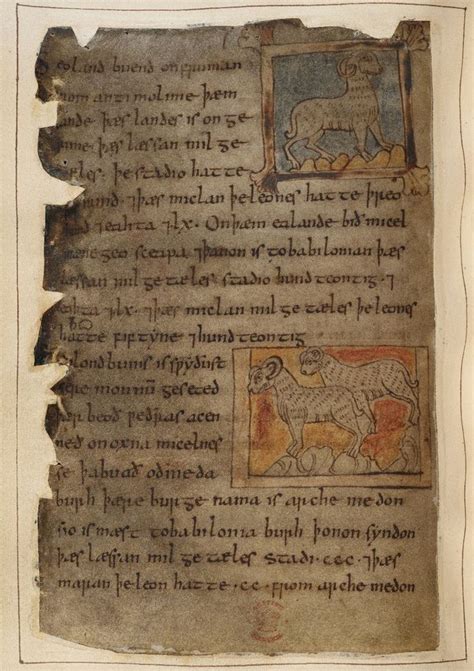 eo land buend on fruman
from anti molime þæm
lande þæs landes is on ge
rime þæs læssan mil ge
tæles þe stadio hatte
hund ⁊ þæs miclan þe leones hatte þreo
hund ⁊ eahta ⁊ lx· On þæm ealande bið micel
mænego sceapa ⁊ þanon is to babiloniam þæs
læssan mil ge tæles stadio hund teontig· ⁊
eahta ⁊ lx· ⁊ þæs miclan mil ge tæles þe leones
hatte fiftyne ⁊ hund teontig
lond bunis is swyðust
monnū geseted
þær beoð weðras acen
ned on oxna micelnes
se þa buað oð meda
burh þære burge nama is arche medon
sio is mæst to babilonia burh þonon syndon
þæs læssan mil ge tæles stadi·ccc· ⁊ þæs
maran þe leon hatte·cc· from arche medon